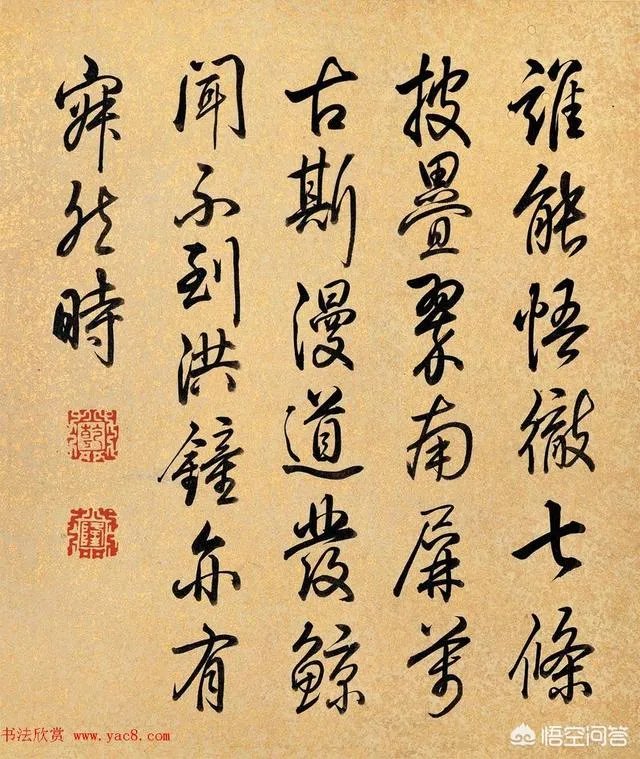 誰能悟徹七條
披疊翠南屏萬
古斯漫道發鯨
聞不到洪鐘亦有
寂然時
乾
隆
书法欣赏 www.yac8.com
悟空问答